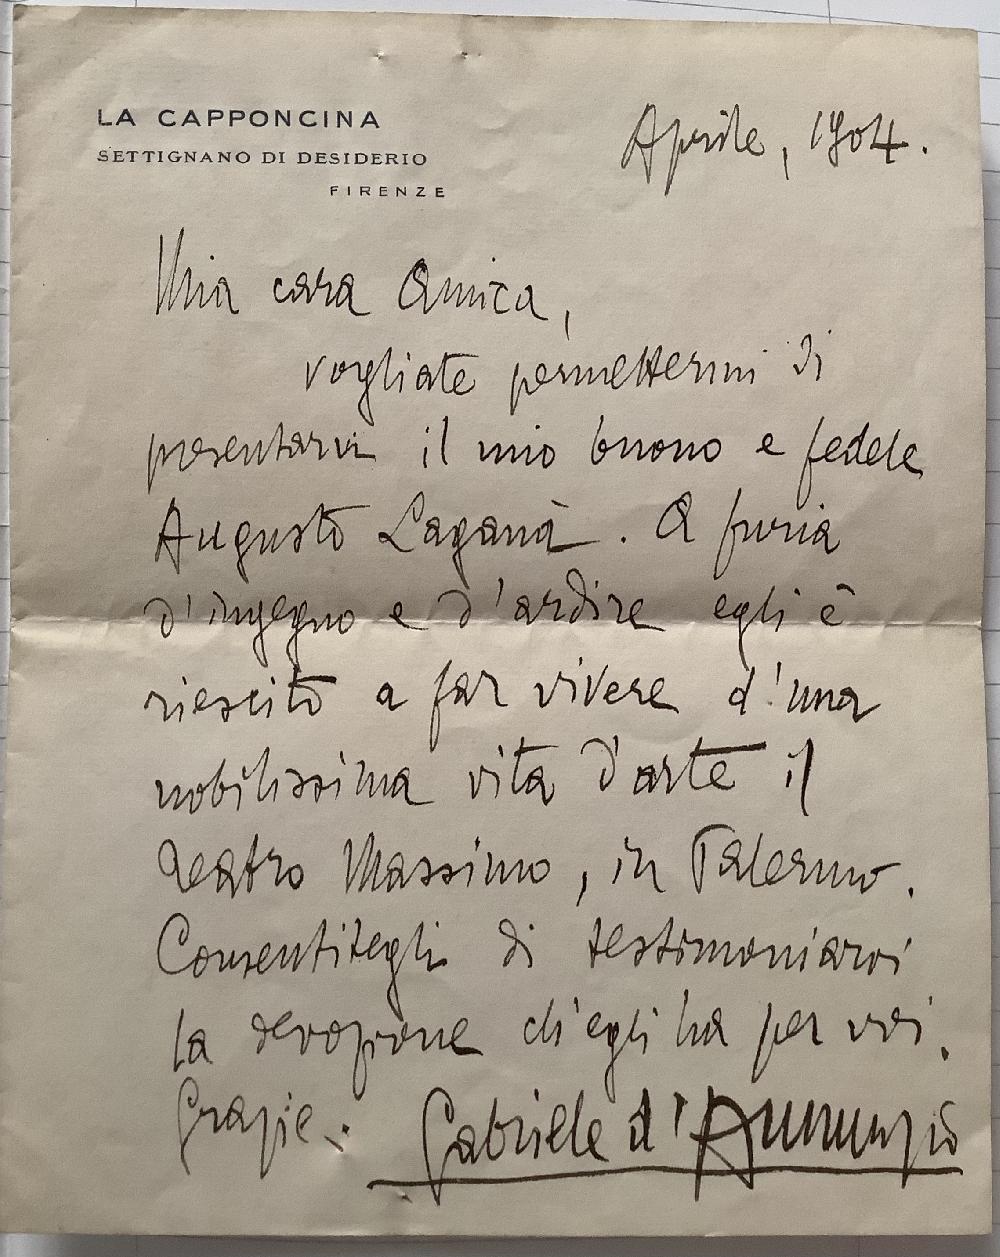 LA CAPPONCINA
SETTIGNANO DI DESIDERIO
FIRENZE
Aprile, 1904.
Mia cara Amica,
vogliate permettermi di
presentarvi il mio buono e fedele
Augusto Laganà. A furia
d'ingegno e d'ardire egli è
riescito a far vivere d'una
nobilissima vita d'arte il
Teatro Massimo, in Palermo.
Consentitegli di testimoniarvi
la devozione ch'egli ha per voi.
Grazie.
Gabriele d'Annunzio